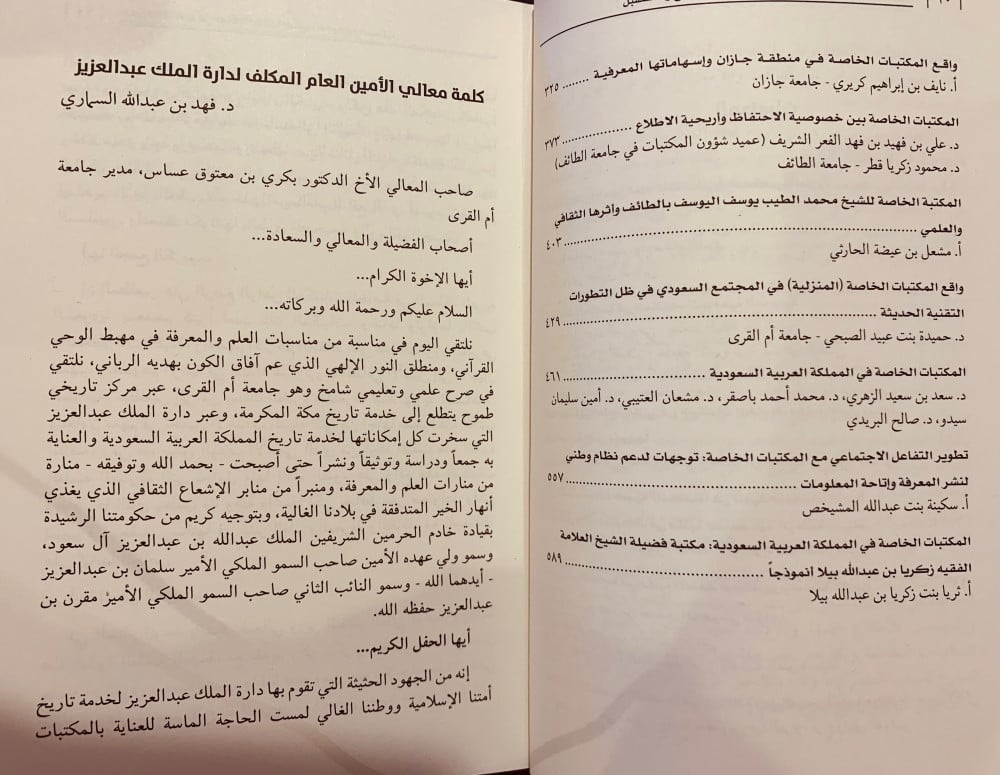 واقع المكتبات الخاصة في منطقة جازان وإسهاماتها المعرفية ........ ٣٢٥
أ. نايف بن إبراهيم كريري - جامعة جازان
المكتبات الخاصة بين خصوصية الاحتفاظ وأريحية الاطلاع ........ ٣٧٣
د. علي بن فهيد بن فهد الفعر الشريف (عميد شؤون المكتبات في جامعة الطائف)
د. محمود زكريا قطر - جامعة الطائف
المكتبة الخاصة للشيخ محمد الطيب يوسف اليوسف بالطائف وأثرها الثقافي
والعلمي ........ ٤٠٣
أ. مشعل بن عيضة الحارثي
واقع المكتبات الخاصة (المنزلية) في المجتمع السعودي في ظل التطورات
التقنية الحديثة ........ ٤٢٩
د. حميدة بنت عبيد الصبحي - جامعة أم القرى
المكتبات الخاصة في المملكة العربية السعودية ........ ٤٦١
د. سعد بن سعيد الزهري، د. محمد أحمد باصقر، د. مشعان العتيبي، د. أمين سليمان
سيدو، د. صالح البريدي
تطوير التفاعل الاجتماعي مع المكتبات الخاصة: توجهات لدعم نظام وطني
لنشر المعرفة وإتاحة المعلومات ........ ٥٥٧
أ. سكينة بنت عبدالله المشيخص
المكتبات الخاصة في المملكة العربية السعودية: مكتبة فضيلة الشيخ العلامة
الفقيه زكريا بن عبدالله بيلا أنموذجاً ........ ٥٨٩
أ. ثريا بنت زكريا بن عبدالله بيلا
كلمة معالي الأمين العام المكلف لدارة الملك عبدالعزيز
د. فهد بن عبدالله السماري
صاحب المعالي الأخ الدكتور بكري بن معتوق عساس، مدير جامعة
أم القرى
أصحاب الفضيلة والمعالي والسعادة...
أيها الإخوة الكرام...
السلام عليكم ورحمة الله وبركاته...
نلتقي اليوم في مناسبة من مناسبات العلم والمعرفة في مهبط الوحي
القرآني، ومنطلق النور الإلهي الذي عم آفاق الكون بهديه الرباني، نلتقي
في صرح علمي وتعليمي شامخ وهو جامعة أم القرى، عبر مركز تاريخي
طموح يتطلع إلى خدمة تاريخ مكة المكرمة، وعبر دارة الملك عبدالعزيز
التي سخرت كل إمكاناتها لخدمة تاريخ المملكة العربية السعودية والعناية
به جمعاً ودراسة وتوثيقاً ونشراً حتى أصبحت - بحمد الله وتوفيقه - منارة
من منارات العلم والمعرفة، ومنبراً من منابر الإشعاع الثقافي الذي يغذي
أنهار الخير المتدفقة في بلادنا الغالية، وبتوجيه كريم من حكومتنا الرشيدة
بقيادة خادم الحرمين الشريفين الملك عبدالله بن عبدالعزيز آل سعود،
وسمو ولي عهده الأمين صاحب السمو الملكي الأمير سلمان بن عبدالعزيز
- أيدهما الله - وسمو النائب الثاني صاحب السمو الملكي الأمير مقرن بن
عبدالعزيز حفظه الله.
أيها الحفل الكريم...
إنه من الجهود الحثيثة التي تقوم بها دارة الملك عبدالعزيز لخدمة تاريخ
أمتنا الإسلامية ووطننا الغالي لمست الحاجة الماسة للعناية بالمكتبات